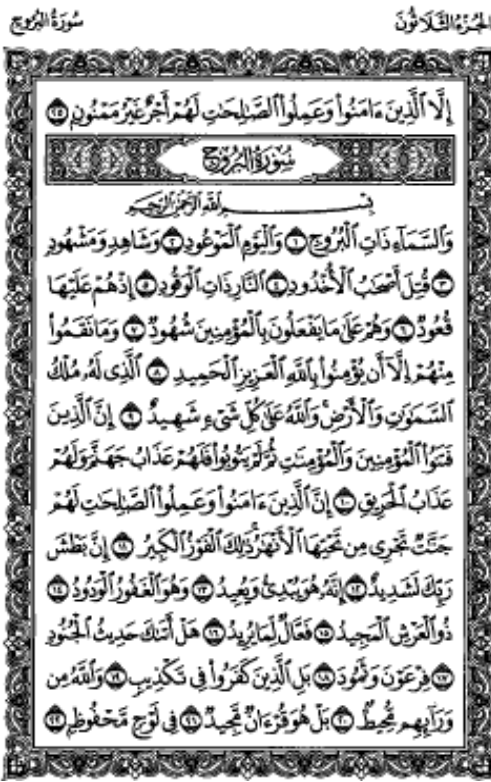 سُورَةُ البُرُوجِ الجُزْءُ الثَّلَاثُونَ
إِلَّا ٱلَّذِينَ ءَامَنُوا۟ وَعَمِلُوا۟ ٱلصَّـٰلِحَـٰتِ لَهُمْ أَجْرٌ غَيْرُ مَمْنُونٍۭ ٢٥
سُورَةُ البُرُوجِ
بِسْمِ ٱللَّهِ ٱلرَّحْمَـٰنِ ٱلرَّحِيمِ
وَٱلسَّمَآءِ ذَاتِ ٱلْبُرُوجِ ١ وَٱلْيَوْمِ ٱلْمَوْعُودِ ٢ وَشَاهِدٍ وَمَشْهُودٍ
٣ قُتِلَ أَصْحَـٰبُ ٱلْأُخْدُودِ ٤ ٱلنَّارِ ذَاتِ ٱلْوَقُودِ ٥ إِذْ هُمْ عَلَيْهَا
قُعُودٌ ٦ وَهُمْ عَلَىٰ مَا يَفْعَلُونَ بِٱلْمُؤْمِنِينَ شُهُودٌ ٧ وَمَا نَقَمُوا۟
مِنْهُمْ إِلَّآ أَن يُؤْمِنُوا۟ بِٱللَّهِ ٱلْعَزِيزِ ٱلْحَمِيدِ ٨ ٱلَّذِى لَهُۥ مُلْكُ
ٱلسَّمَـٰوَٰتِ وَٱلْأَرْضِ ۚ وَٱللَّهُ عَلَىٰ كُلِّ شَىْءٍ شَهِيدٌ ٩ إِنَّ ٱلَّذِينَ
فَتَنُوا۟ ٱلْمُؤْمِنِينَ وَٱلْمُؤْمِنَـٰتِ ثُمَّ لَمْ يَتُوبُوا۟ فَلَهُمْ عَذَابُ جَهَنَّمَ وَلَهُمْ
عَذَابُ ٱلْحَرِيقِ ١٠ إِنَّ ٱلَّذِينَ ءَامَنُوا۟ وَعَمِلُوا۟ ٱلصَّـٰلِحَـٰتِ لَهُمْ
جَنَّـٰتٌ تَجْرِى مِن تَحْتِهَا ٱلْأَنْهَـٰرُ ۚ ذَٰلِكَ ٱلْفَوْزُ ٱلْكَبِيرُ ١١ إِنَّ بَطْشَ
رَبِّكَ لَشَدِيدٌ ١٢ إِنَّهُۥ هُوَ يُبْدِئُ وَيُعِيدُ ١٣ وَهُوَ ٱلْغَفُورُ ٱلْوَدُودُ ١٤
ذُو ٱلْعَرْشِ ٱلْمَجِيدُ ١٥ فَعَّالٌ لِّمَا يُرِيدُ ١٦ هَلْ أَتَىٰكَ حَدِيثُ ٱلْجُنُودِ
١٧ فِرْعَوْنَ وَثَمُودَ ١٨ بَلِ ٱلَّذِينَ كَفَرُوا۟ فِى تَكْذِيبٍ ١٩ وَٱللَّهُ مِن
وَرَآئِهِم مُّحِيطٌۢ ٢٠ بَلْ هُوَ قُرْءَانٌ مَّجِيدٌ ٢١ فِى لَوْحٍ مَّحْفُوظٍۭ ٢٢